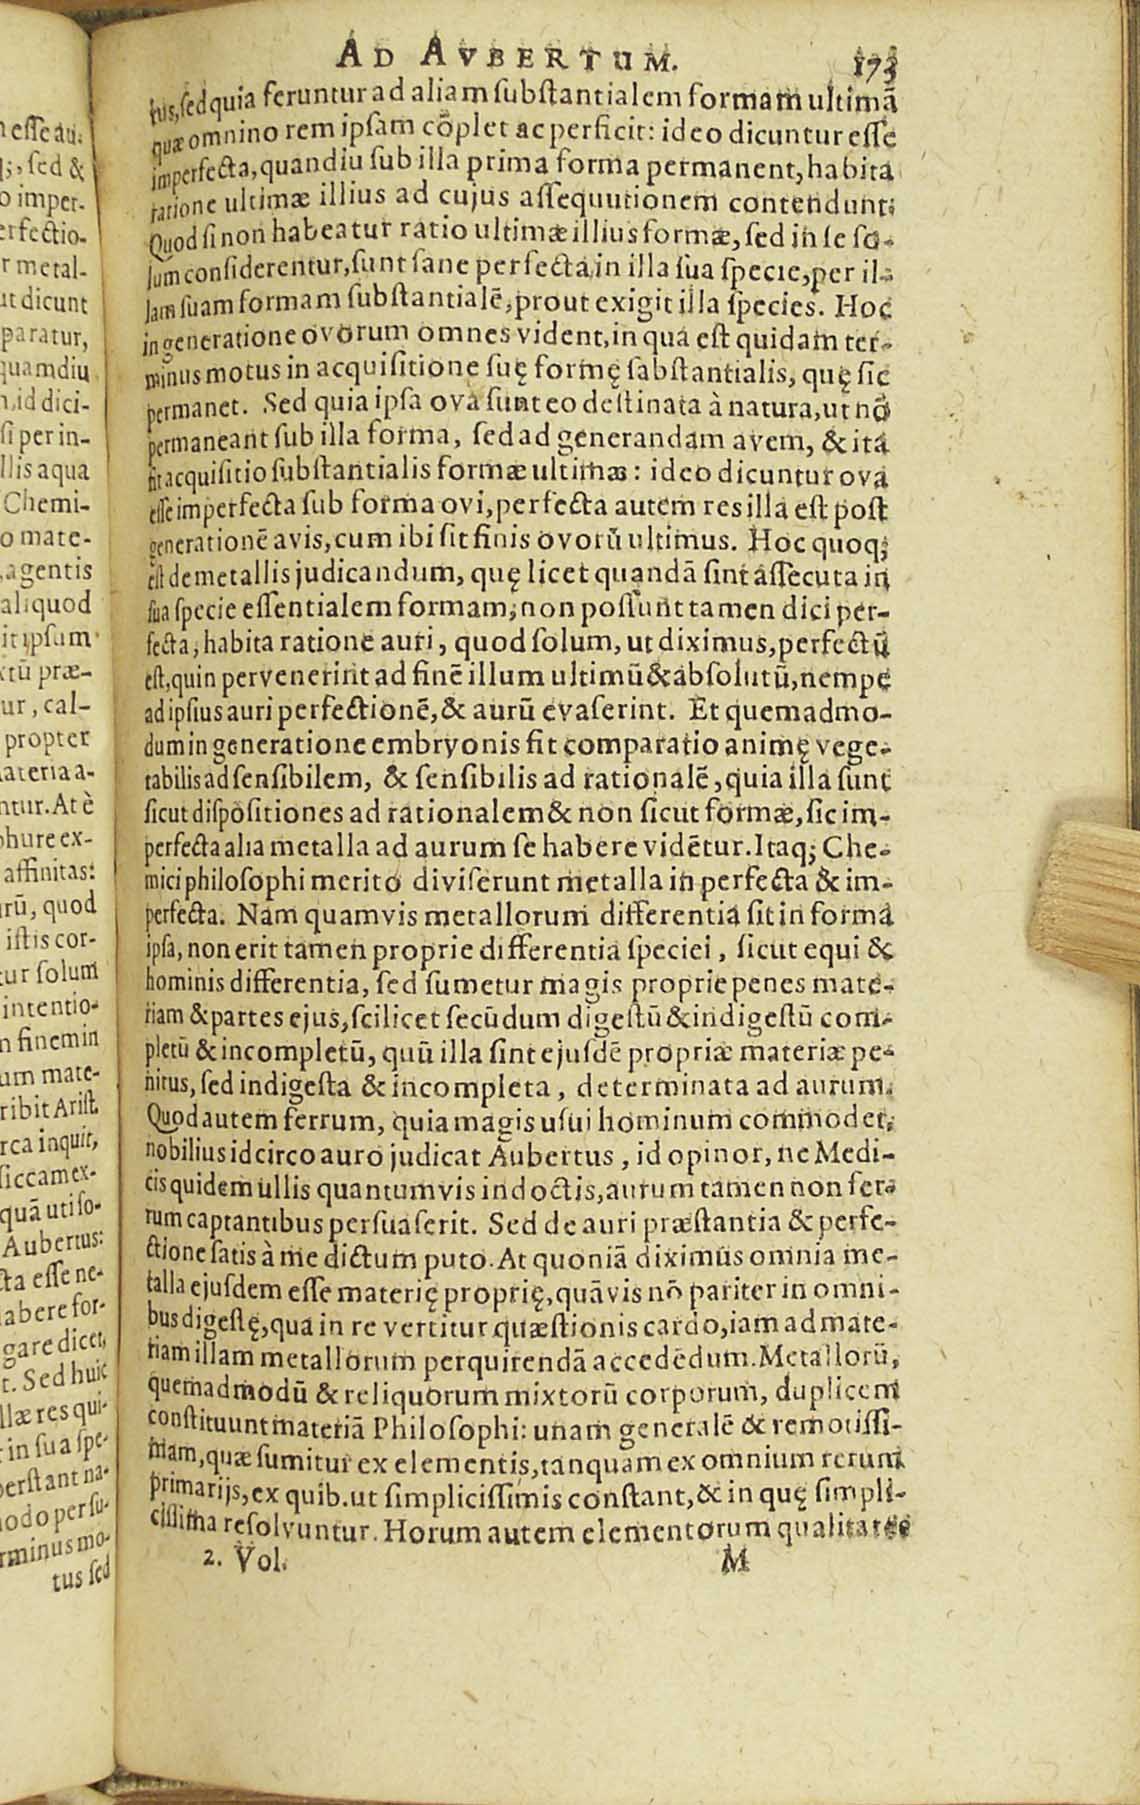 AD AVBERTUM. 173
tus, sed quia feruntur ad aliam substantialem formam ultimã
quæ omnino rem ipsam cõplet ac perficit: ideo dicuntur esse
imperfecta, quandiu sub illa prima forma permanent, habita
ratione ultimæ illius ad cujus assequutionem contendunt:
Quod si non habeatur ratio ultimæ illius formæ, sed in se so-
lum considerentur, sunt sane perfecta in illa sua specie, per il-
lam suam formam substantialẽ, prout exigit illa species. Hoc
in generatione ovorum omnes vident, in qua est quidam ter-
minus motus in acquisitione suę formę sabstantialis, quę sic
permanet. Sed quia ipsa ova sunt eo destinata à natura, ut nõ
permaneant sub illa forma, sed ad generandam avem, & ita
fit acquisitio substantialis formæ ultimæ: ideo dicuntur ova
esse imperfecta sub forma ovi, perfecta autem res illa est post
generationẽ avis, cum ibi sit finis ovorũ ultimus. Hoc quoq;
est de metallis judicandum, quę licet quandã sint assecuta in
sua specie essentialem formam, non possunt tamen dici per-
fecta, habita ratione auri, quod solum, ut diximus, perfectũ
est, quin pervenerint ad finẽ illum ultimũ & absolutũ, nempe
ad ipsius auri perfectionẽ, & aurũ evaserint. Et quemadmo-
dum in generatione embryonis fit comparatio animę vege-
tabilis ad sensibilem, & sensibilis ad rationalẽ, quia illa sunt
sicut dispositiones ad rationalem & non sicut formæ, sic im-
perfecta alia metalla ad aurum se habere vidẽtur. Itaq; Che-
mici philosophi merito diviserunt metalla in perfecta & im-
perfecta. Nam quamvis metallorum differentia sit in forma
ipsa, non erit tamen proprie differentia speciei, sicut equi &
hominis differentia, sed sumetur magis proprie penes mate-
riam & partes ejus, scilicet secũdum digestũ & indigestũ com-
pletũ & incompletũ, quũ illa sint ejusdẽ propriæ materiæ pe-
nitus, sed indigesta & incompleta, determinata ad aurum.
Quod autem ferrum, quia magis usui hominum commodet,
nobilius idcirco auro judicat Aubertus, id opinor, ne Medi-
cis quidem ullis quantumvis indoctis, aurum tamen non fer-
rum captantibus persuaserit. Sed de auri præstantia & perfe-
ctione satis à me dictum puto. At quoniã diximus omnia me-
talla ejusdem esse materię proprię, quãvis nõ pariter in omni-
bus digestę, qua in re vertitur quæstionis cardo, iam ad mate-
riam illam metallorum perquirendã accedẽdum. Metallorũ,
quemadmodũ & reliquorum mixtorũ corporum, duplicem
constituunt materiã Philosophi: unam generalẽ & remotissi-
mam, quæ sumitur ex elementis, tanquam ex omnium rerum
primarijs, ex quib. ut simplicissimis constant, & in quę simpli-
cissima resolvuntur. Horum autem elementorum qualitates
2. Vol. M